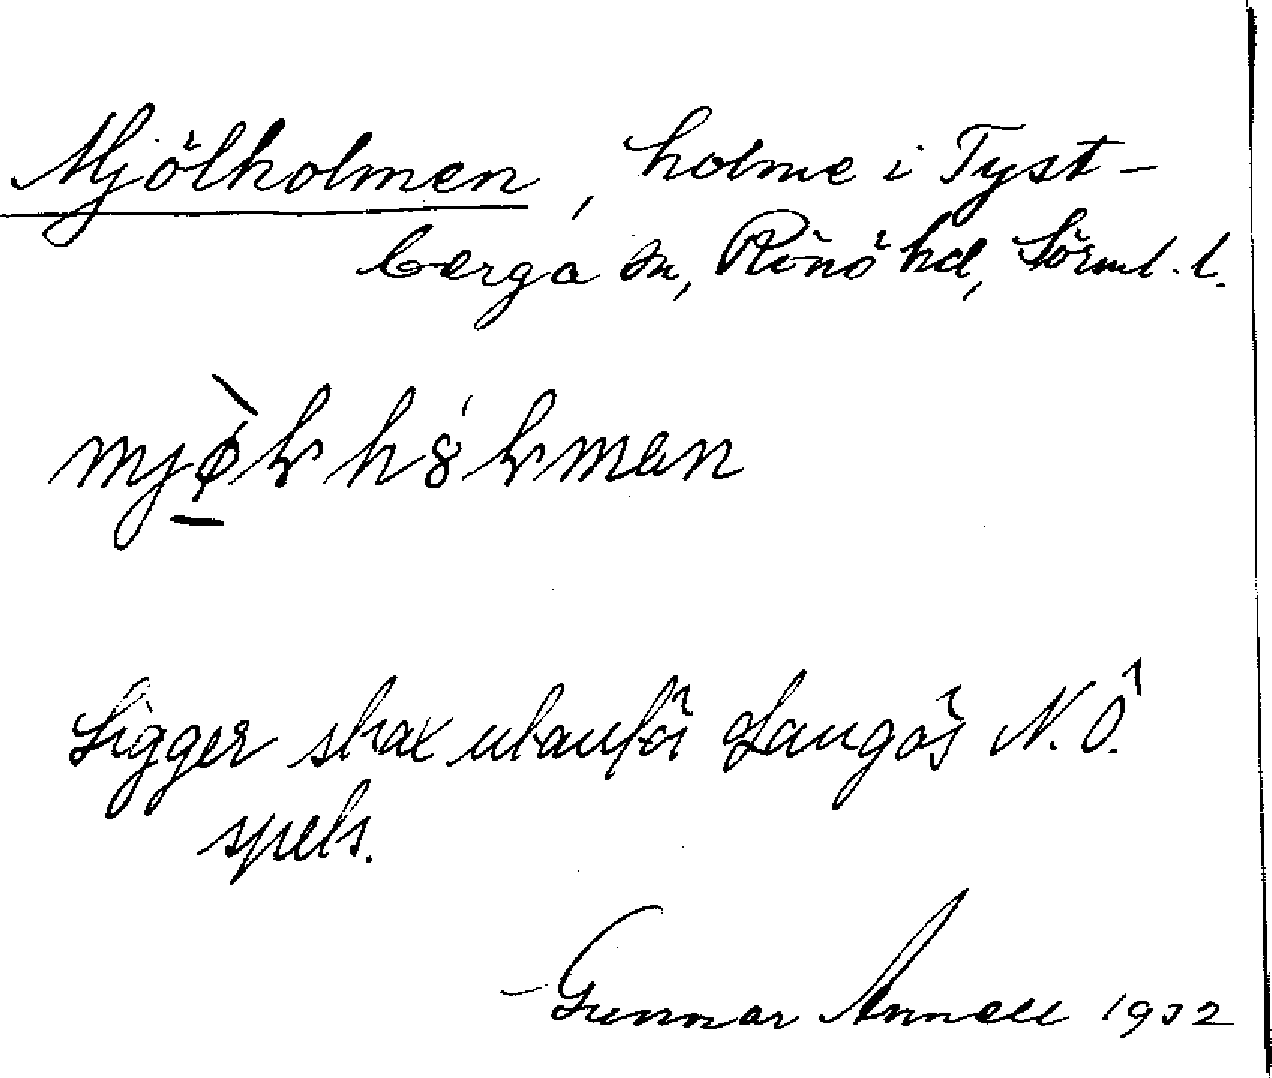 Mjölholmen, holme i Tyst-
berga sn, Rönö hd, Sörml. l.
Ligger strax utanför Långös N.Ö.
spets.
Gunnar Annell 1932